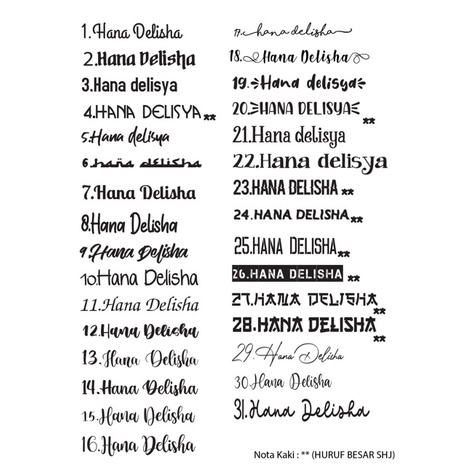 1.Hana Delisha
2.Hana Delisha
3.Hana delisya
4.HANA DELISYA**
5.Hana delisya
6.hana delisha
7.Hana Delisha
8.Hana Delisha
9.Hana Delisha
10.Hana Delisha
11.Hana Delisha
12.Hana Delisha
13.Hana Delisha
14.Hana Delisha
15.Hana Delisha
16.Hana Delisha
17.hana delisha
18.Hana Delisha
19.Hana delisya
20.HANA DELISYA**
21.Hana delisya
22.Hana delisya
23.HANA DELISHA**
24.HANA DELISHA**
25.HANA DELISHA**
26.HANA DELISHA**
27.HANA DELISHA**
28.HANA DELISHA**
29.Hana Delisha
30.Hana Delisha
31.Hana Delisha
Nota Kaki : ** (HURUF BESAR SHJ)